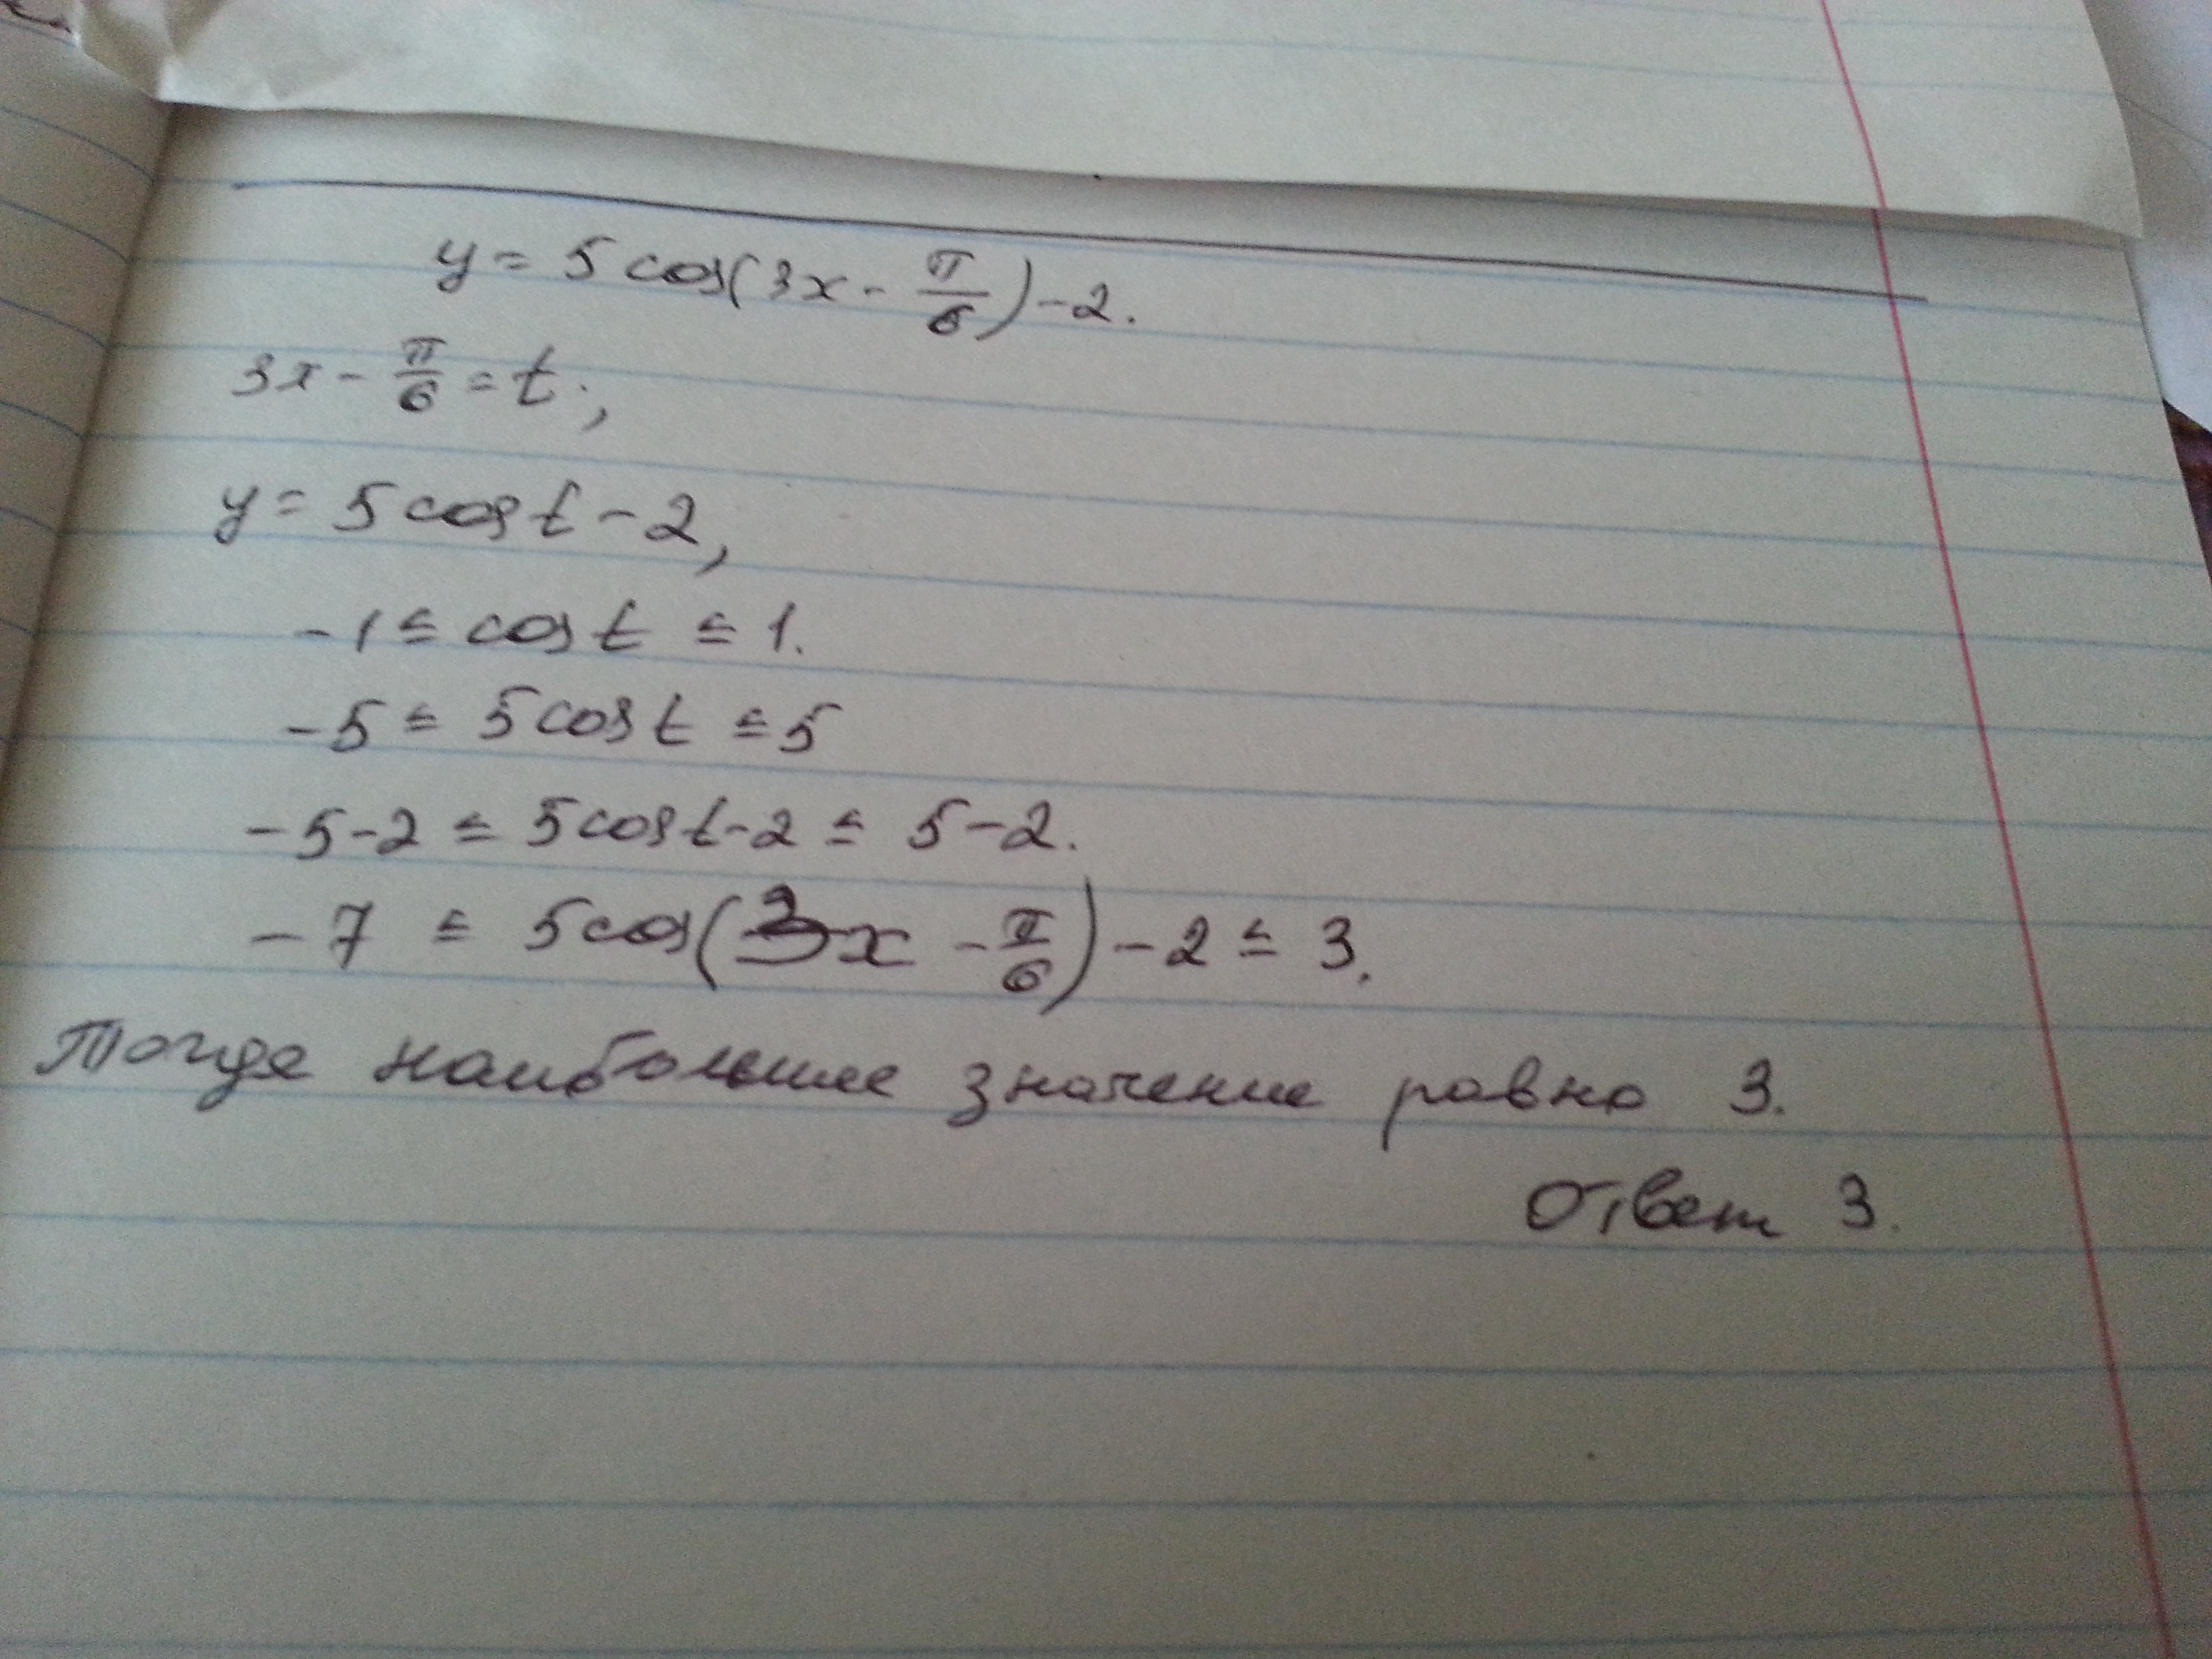 y = 5 cos(3x - π/6) - 2.
3x - π/6 = t;
y = 5 cos t - 2,
-1 ≤ cos t ≤ 1.
-5 ≤ 5 cos t ≤ 5
-5-2 ≤ 5 cos t - 2 ≤ 5-2.
-7 ≤ 5 cos(3x - π/6) - 2 ≤ 3.
Тогда наибольшее значение равно 3.
Ответ 3.